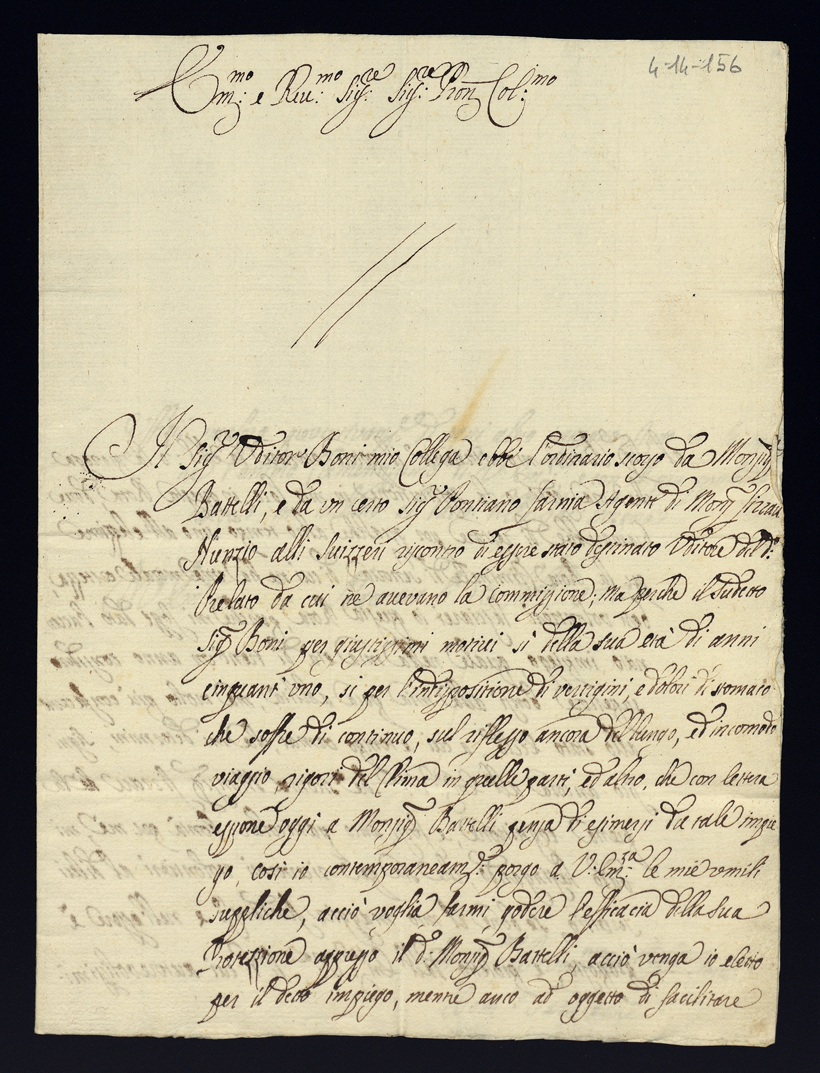 4-14-156
Em:mo e Reu:mo Sig:re Sig:re Pron Col:mo
Il Sigr Uditor Boni mio Collega ebbe l'ordinario scorso da Monsigr
Battelli, e da vn certo Sigr Pontiano Agente di Monsr
Nunzio alli Suizzeri riscontro di essere stato destinato Uditore del d:o
Prelato da cui ne aueuano la Commissione; ma perche il sudetto
Sigr Boni per giustissimi motiui si della sua età di anni
cinquant'vno, si per l'indisposizione di vertigini, e dolori di stomaco
che soffre di continuo, sul riflesso ancora del lungo, ed incomodo
viaggio, rigori del Clima in quelle parti, ed altro, che con lettera
espone oggi a Monsigr Battelli pensa di esimersi da tale impie
go, così io contemporaneam:e porgo a V: Em:za le mie vmili
suppliche, acciò voglia farmi godere l'efficacia della sua
Protezione appresso il d:o Monsigr Battelli acciò venga io eletto
per il detto impiego, mentre anco ad oggetto di facilitare